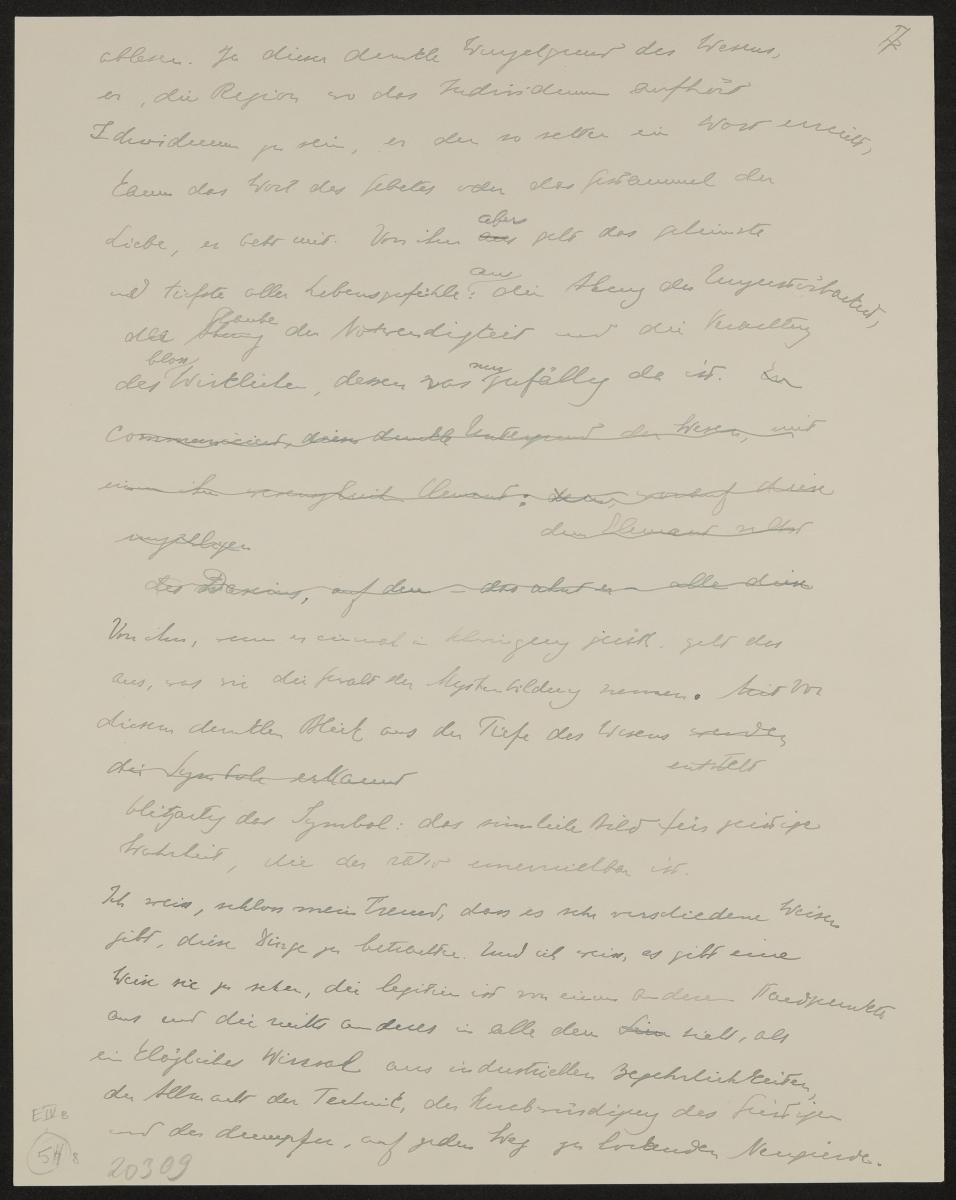 IV
ablesen. Ja dieser dunkle Wurzelgrund des Wesens,
er, die Region wo das Individuum aufhört
Idividuum zu sein, er den so selten ein Wort erreicht,
kaum das Wort des Gebetes oder das Gestammel der
Liebe, er bebt mit. Von ihm aber geht das geheimste
und tiefste aller Lebensgefühle aus: die Ahnung der Unzerstörbarkeit,
der Glaube der Notwendigkeit und die Verachtung
des bloss Wirklichen, dessen was nur zufällig da ist.
communiciert, dieser dunkle Untergrund des Wesens, mit
einem ihm Element:
dem Element selbst
des Daseins, auf dem – das ahnt er – alle diese
Von ihm, wenn er einmal in Schwingung gerät, geht das
aus, was wir die Gewalt der Mythenbildung nennen. Vor
diesem dunklen Blick aus der Tiefe des Wesens werden
entsteht
die Symbole erkannt
blitzartig das Symbol: das sinnliche Bild für geistige
Wahrheit, die der ratio unerreichbar ist.
Ich weiss, schloss mein Freund, dass es sehr verschiedene Weisen
gibt, diese Dinge zu betrachten. Und ich weiss, es gibt eine
Weise sie zu sehen, die legitim ist von einem anderen Standpunkte
aus und die nichts anderes in alle dem sieht, als
ein klägliches Wirrsal aus industriellen Begehrlichkeiten,
der Allmacht der Technik, der Herabwürdigung des Geistigen
und der dumpfen, auf jeden Weg zu lockenden Neugierde.
E IV B
54 8
20309